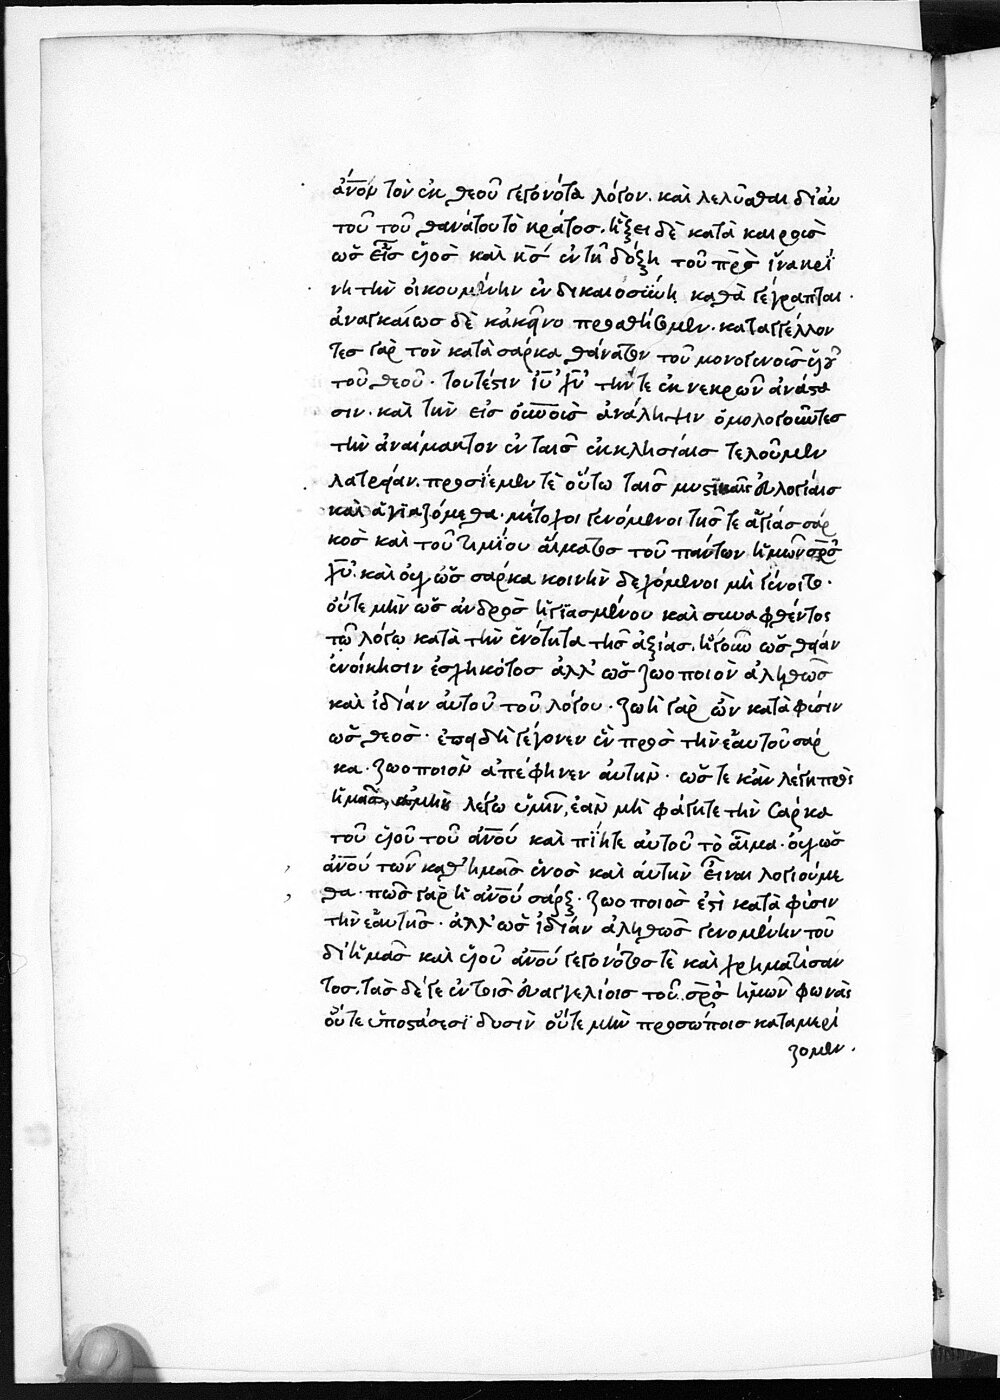 ἄνον τὸν ἐκ θεοῦ γεγονότα λόγον. καὶ λελῦσθαι δι᾽ αὐ
τοῦ τοῦ θανάτου τὸ κράτος. ἥξει δὲ κατὰ καιροὺς
ὡς εἷς υἱὸς καὶ κς ἐν τῆ δόξη τοῦ πρς ἵνα κρί
νη τὴν οἰκουμένην ἐν δικαιοσύνη καθὰ γέγραπται.
ἀναγκαίως δὲ κἀκεῖνο προσθήσομεν. καταγγέλλον
τες γὰρ τὸν κατὰ σάρκα θάνατον τοῦ μονογενοῦς υἱοῦ
τοῦ θεοῦ. τουτέστιν ιυ χυ τήν τε ἐκ νεκρῶν ἀνάστα
σιν. καὶ τὴν εἰς οὐνοὺς ἀνάληψιν ὁμολογοῦντες
τὴν ἀναίμακτον ἐν ταῖς ἐκκλησίαις τελοῦμεν
λατρείαν. πρόσιέμεν τὲ οὕτω ταῖς μυστικαῖς εὐλογίαις
καὶ ἁγιαζόμεθα. μέτοχοι γενόμενοι τῆς τε ἁγίας σαρ
κὸς καὶ τοῦ τιμίου αἵματος τοῦ πάντων ἡμῶν σρς
χυ. καὶ οὐχ ὡς σάρκα κοινὴν δεχόμενοι μὴ γένοιτο.
οὔτε μὴν ὡς ἀνδρὸς ἡγιασμένου καὶ συναφθέντος
τῷ λόγω κατὰ τὴν ἑνότητα τῆς ἀξίας. ἤγουν ὡς θείαν
ἐνοίκησιν ἐσχηκότος ἀλλ᾽ ὡς ζωοποιὸν ἀληθῶς
καὶ ἰδίαν αὐτοῦ τοῦ λόγου. ζωὴ γὰρ ὢν κατὰ φύσιν
ὡς θεὸς. ἐπειδὴ γέγονεν ἓν πρὸς τὴν ἑαυτοῦ σάρ
κα. ζωοποιὸν ἀπέφηνεν αὐτὴν. ὥς τε κἂν λέγη πρὸς
ἡμᾶς, ἀμὴν λέγω ὑμῖν, ἐὰν μὴ φάγητε τὴν σάρκα
τοῦ υἱοῦ τοῦ ἀνου καὶ πίητε αὐτοῦ τὸ αἷμα. οὐχ ὡς
ἀνου τῶν καθ᾽ ἡμᾶς ἑνὸς καὶ αὐτὴν εἶναι λογιούμε
θα. πῶς γὰρ ἡ ἀνου σάρξ. ζωοποιὸς ἐστὶ κατὰ φύσιν
τὴν ἑαυτῆς. ἀλλ᾽ ὡς ἰδίαν ἀληθῶς γενομένην τοῦ
δι᾽ ἡμᾶς καὶ υἱοῦ ἀνου γεγονότος τὲ καὶ χρηματίσαν
τος. τὰς δέ γε ἐν τοῖς εὐαγγελίοις τοῦ σρς ἡμῶν φωνὰς
οὔτε ὑποστάσεσι δυσὶν οὔτε μὴν προσώποις καταμερί
ζομεν.